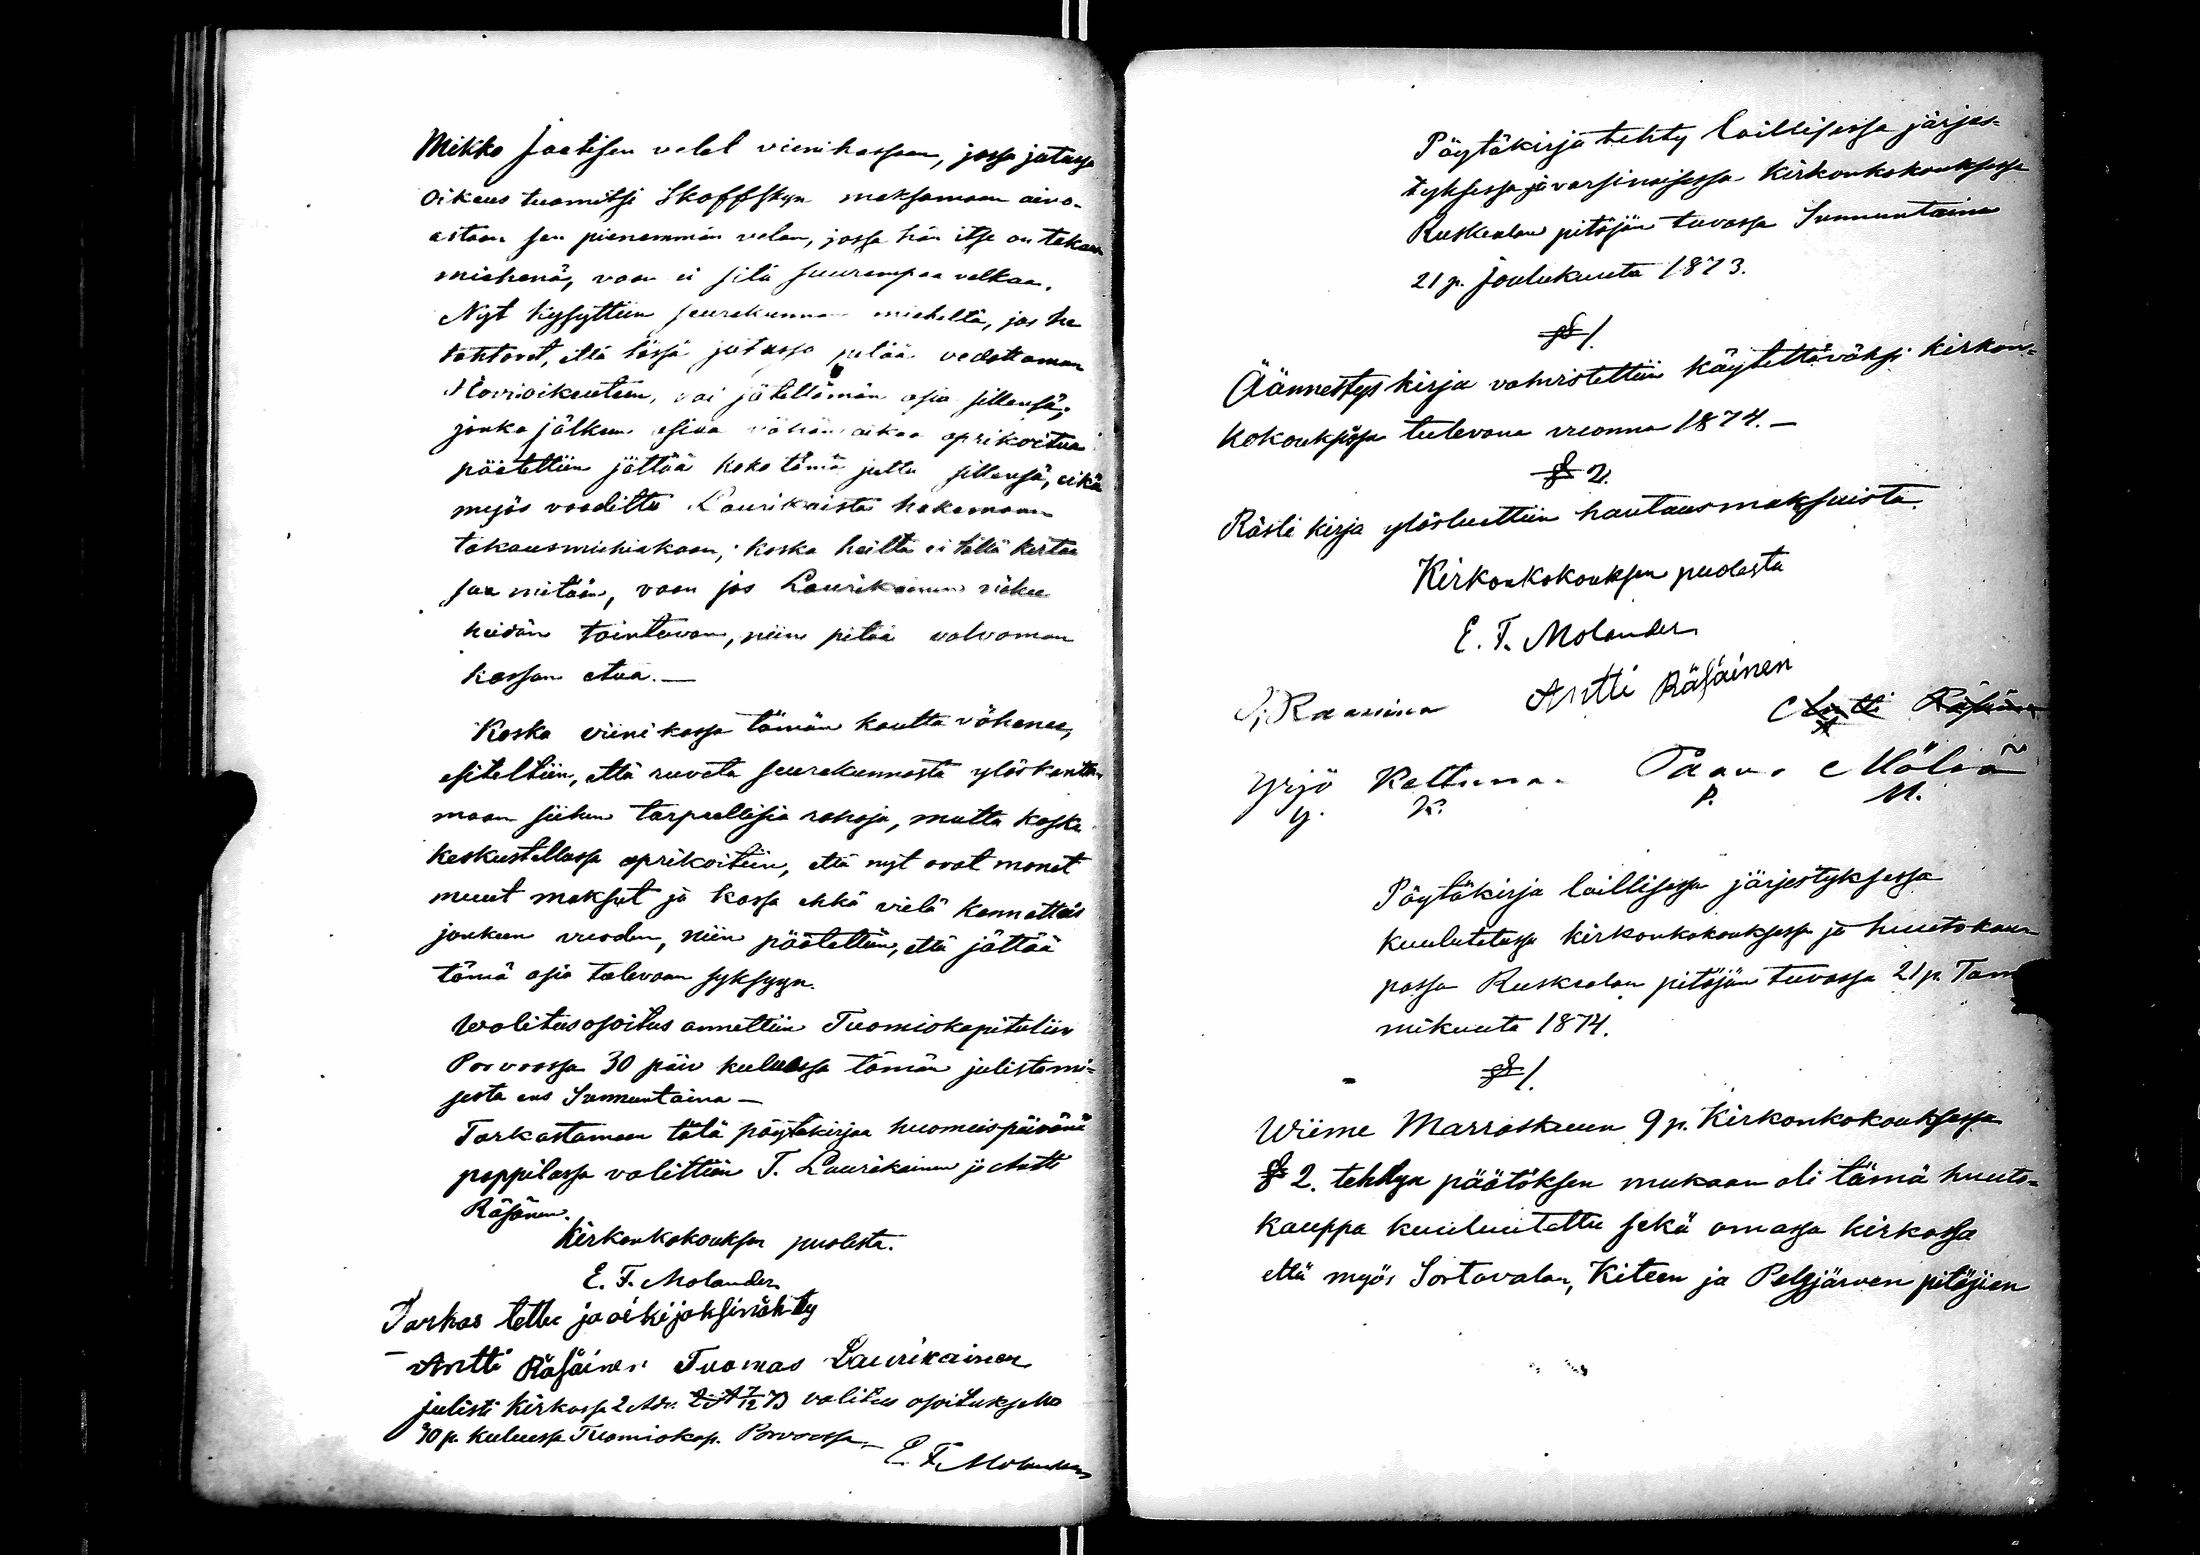 Mikko Jaatisen velat viinikassaan, jossa jutussa
Oikeus tuomitsi Skoffskyn maksamaan aino-
astaan sen pienemmän velan, jossa hän itse on takaus
miehenä, vaan ei sitä suurempaa velkaa.
Nyt kysyttiin seurakunnan mieheltä, jos he
tahtovat, että tässä jutussa pitää vedottaman
Hovrioikeuteen, vai jätettämän asia sillensä;
jonka jälkeen asiaa vähän aikaa aprikoitua
päätettiin jättää koko tämä juttu sillensä, eikä
myös vaadittu Laurikaista hakemaan
takausmiehiäkään, koska heiltä ei tällä kertaa
saa mitään, vaan jos Laurikainen näkee
heidän tointuvan, niin pitää valvoman
kassan etua.—
Koska viinikassa tämän kautta vähenee,
esiteltiin, että ruveta seurakunnasta ylöskanta-
maan siihen tarpeellisia rahoja, mutta koska
keskustellassa aprikoitiin, että nyt ovat monet
muut maksut ja kassa ehkä vielä kannattais
jonkun vuoden, niin päätettiin, että jättää
tämä asia tulevaan syksyyn.
Walitusosoitus annettiin Tuomiokapituliin
Porvoossa 30 päiv kuluessa tämän julistami-
sesta ens Sunnuntaina —
Tarkastamaan tätä pöytäkirjaa huomeispäivänä
pappilassa valittiin T. Laurikainen ja Antti
Räsänen.
Kirkonkokouksen puolesta.
E. F. Molander
Tarkas tettu ja oikijaksinähty
Antti Räsäinen Tuomas Laurikainen
julisti kirkossa 2 Adv. 7/12 73 valitus osoituksella
30 p. kuluessa Tuomiokap. Porvoossa.—
E. F. Molander
Pöytäkirja tehty laillisessa järjes-
tyksessä ja varsinaisessa kirkonkokouksessa
Ruskealan pitäjän tuvassa Sunnuntaina
21 p. Joulukuuta 1873.
§ 1.
Äännestys kirja vahvistettiin käytettäväksi kirkon-
kokouksissa tulevana vuonna 1874.—
§ 2.
Rästi kirja ylösluettiin hautausmaksuista.
Kirkonkokouksen puolesta
E. F. Molander
Antti Räsäinen
Antti Räsäinen
Yrjö Kettunen Paavo Mölsä
Y. K. P. M.
Pöytäkirja laillisessa järjestyksessä
kuulutetussa kirkonkokouksessa ja huutokau-
passa Ruskealan pitäjän tuvassa 21 p. Tam
mikuuta 1874.
§ 1.
Wiime Marraskuun 9 p. Kirkonkokouksessa
§ 2. tehdyn päätöksen mukaan oli tämä huuto-
kauppa kuuluutettu sekä omassa kirkossa
että myös Sortavalan, Kiteen ja Pelgjärven pitäjien